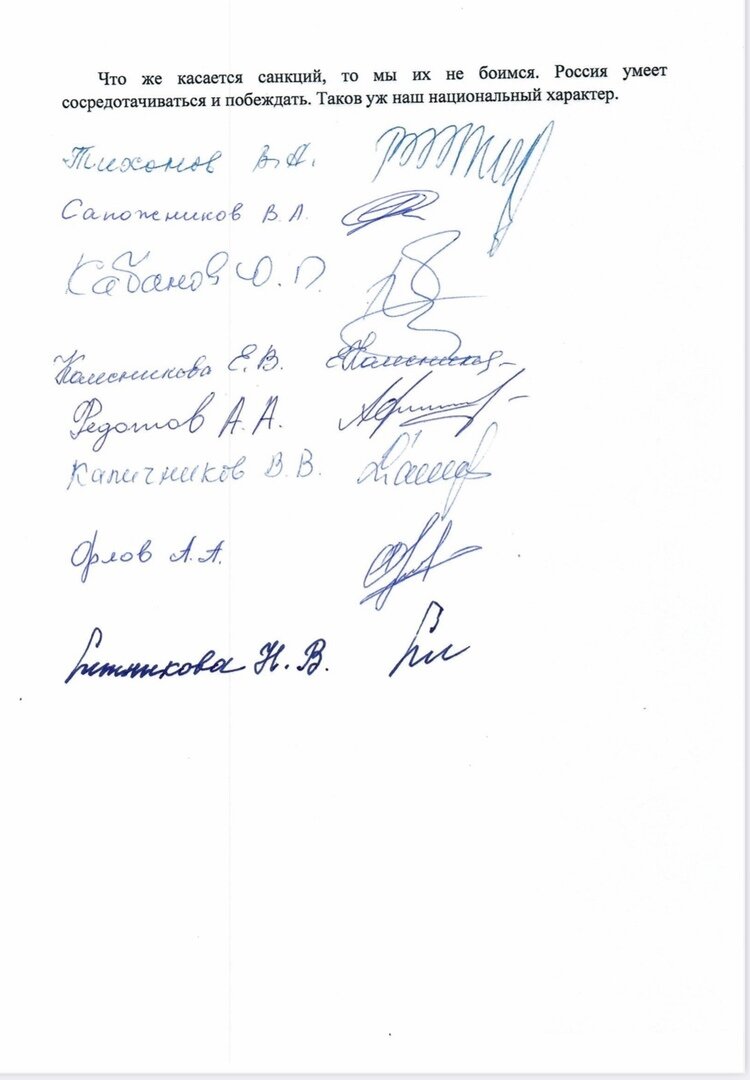 Что же касается санкций, то мы их не боимся. Россия умеет
сосредотачиваться и побеждать. Таков уж наш национальный характер.
Тихонов В.А.
Сапожников В.А.
Кабанов Ю.П.
Колесникова Е.В.
Федотов А.А.
Каличников В.В.
Орлов А.А.
Н.В.